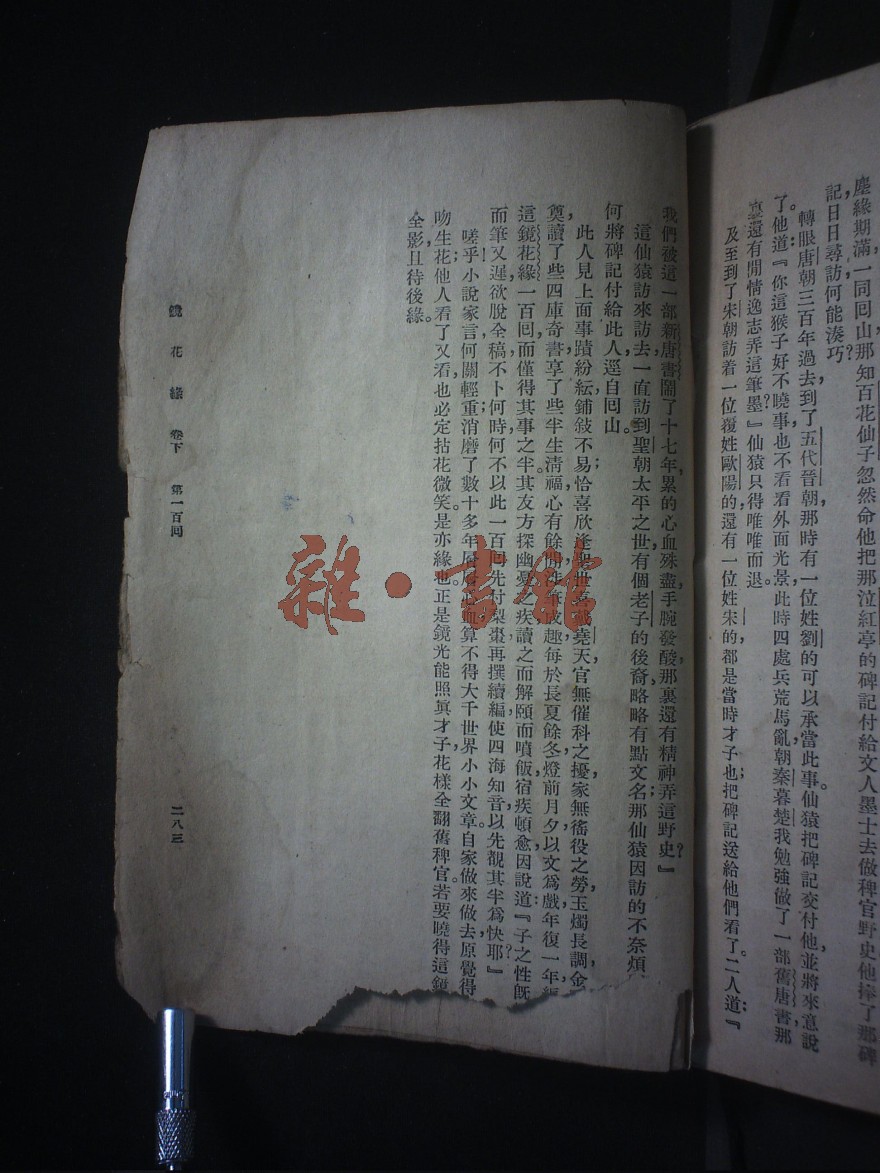 塵緣期滿，一同回山。那知百花仙子忽然命他把那泣紅亭的碑記付給文人墨士去做稗官野史。他捧了那碑
記日日尋訪，何能湊巧？
轉眼唐朝三百年過去，到了五代晉朝，那時有一位姓劉的可以承當此事。仙猿把碑記交付他，並將來意說
了。他道：『你這猴子好不曉事！也不看看外面光景：此時四處兵荒馬亂，朝秦暮楚，我勉強做了一部舊唐書，那
裏還有閒情逸志弄這筆墨？』仙猿只得唯唯而退。
及至到了宋朝，訪着一位覆姓歐陽的，還有一位姓宋的，都是當時才子，也把碑記送給他們看了。二人道：『
我們被這一部新唐書鬧了十七年，累的心血殊盡，手腕發酸，那裏還有精神弄這野史？』
這仙猿訪來訪去，一直訪到聖朝太平之世，有個老子的後裔，略略有點文名；那仙猿因訪的不奈煩，
何，將碑記付給此人，逕自回山。
此人見上面事蹟紛紜，鋪敍不易；恰喜欣逢聖世，喜戴堯天，官無催科之擾，家無徭役之勞，玉燭長調，金
奠；讀了些四庫奇書，享了些半生淸福。心有餘閒，涉筆成趣，每於長夏餘冬，燈前月夕，以文爲戲，年復一年，編
這鏡花緣一百回，而僅得其事之半。其友方抱幽憂之疾，讀之而解頤，而噴飯，宿疾頓愈。因說道：『子之性旣
而筆又遲，欲脫全稿，不卜何時；何不以此一百回先付梨棗，再撰續編，使四海知音以先覩其半爲快耶？』
嗟乎！小說家言，何關輕重！消磨了數十多年層層心血，算不得大千世界小小文章。自家做來做去，原覺得
吻生花；他人看了又看，也必定拈花微笑：是亦緣也。正是鏡光能照眞才子，花樣全翻舊稗官。若要曉得這鏡
全影，且待後緣。
鏡花緣 卷下 第一百回
二八三
雜·書館